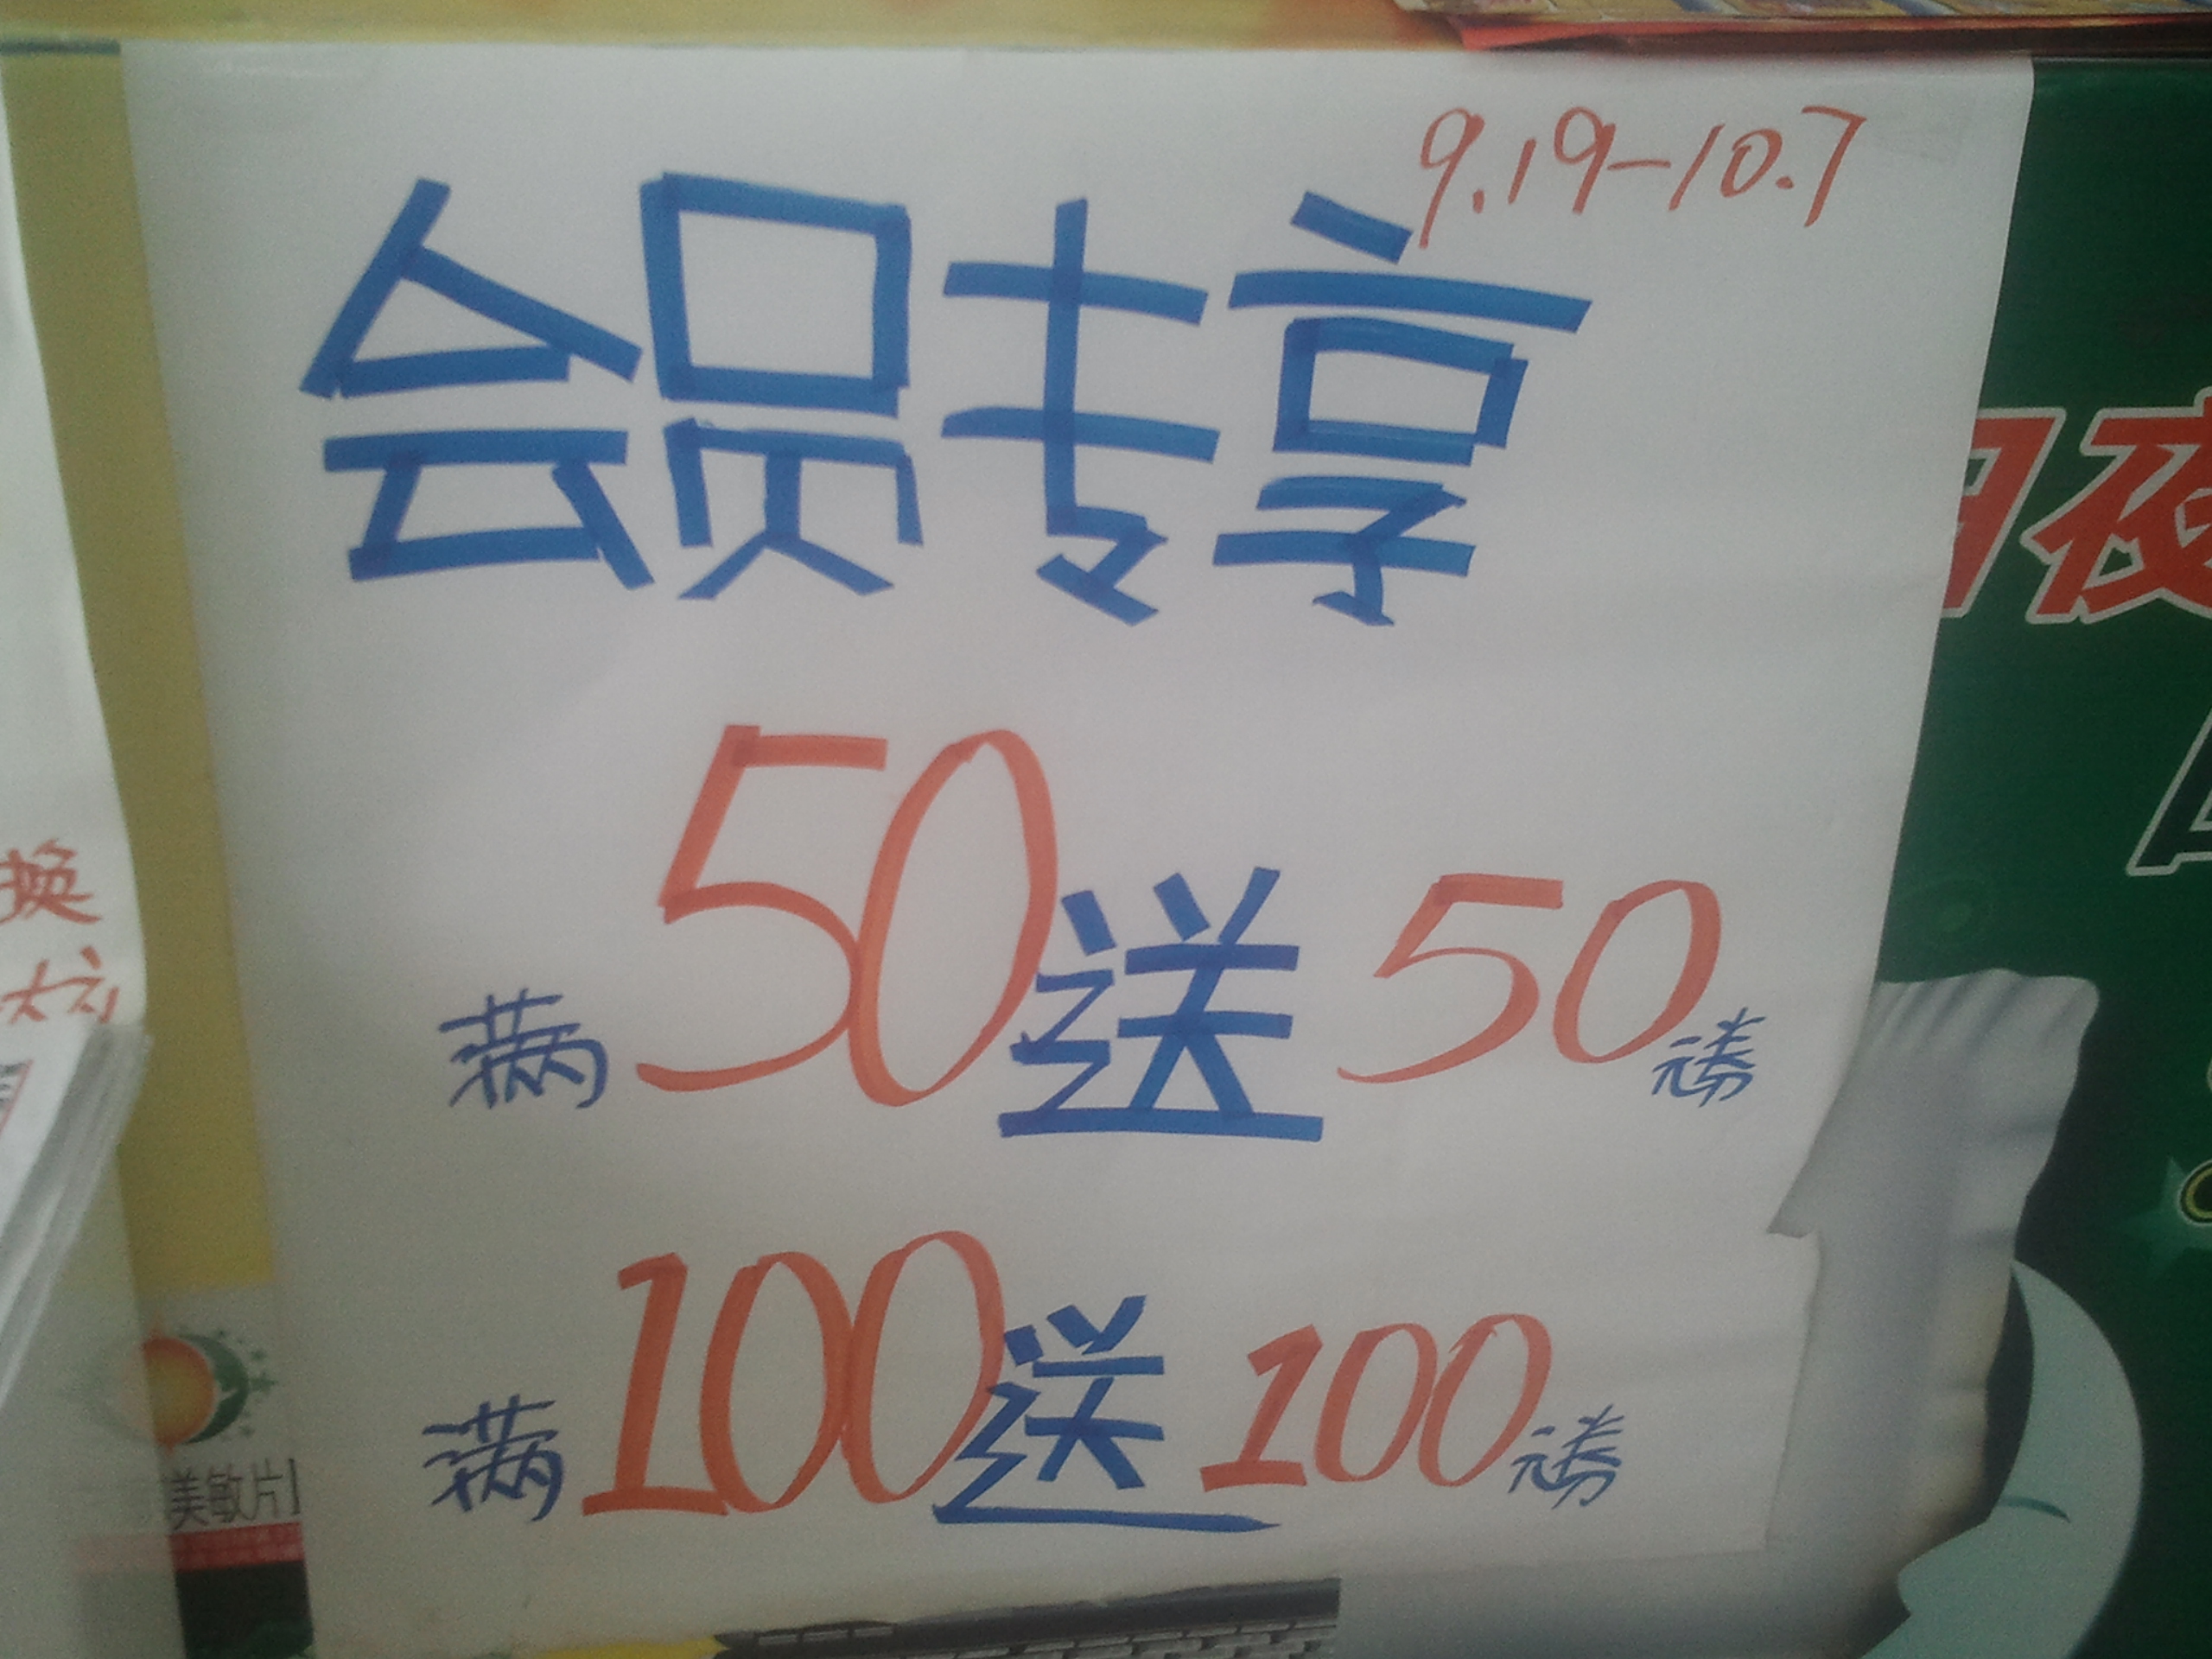 9.19-10.7
会员专享
满50送50元券
满100送100元券
换
夜
美敏片